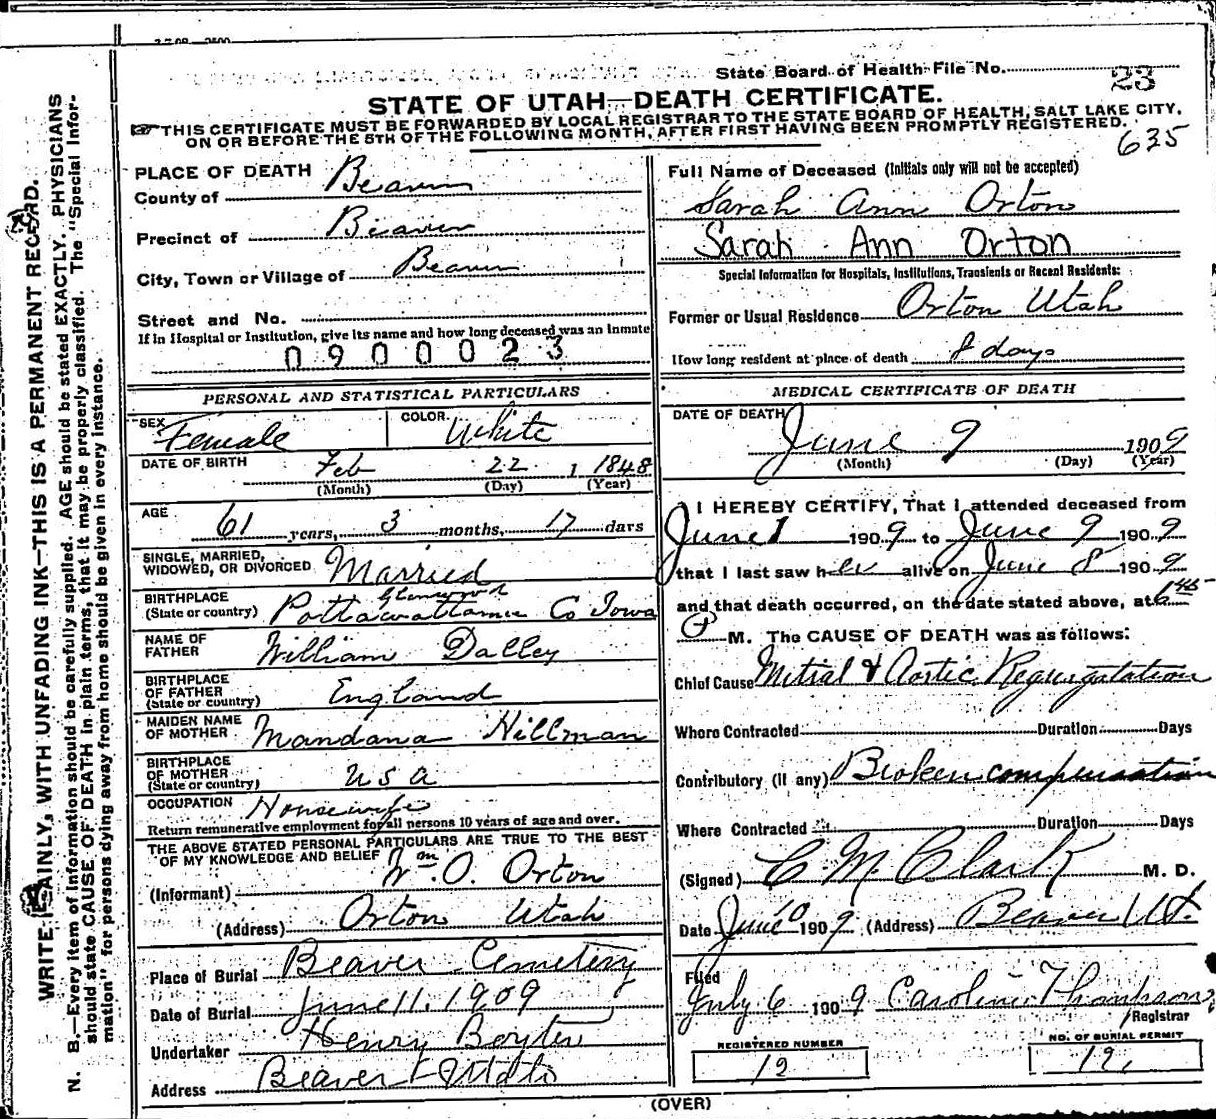 State Board of Health File No. 23
STATE OF UTAH—DEATH CERTIFICATE.
THIS CERTIFICATE MUST BE FORWARDED BY LOCAL REGISTRAR TO THE STATE BOARD OF HEALTH, SALT LAKE CITY,
ON OR BEFORE THE 5TH OF THE FOLLOWING MONTH, AFTER FIRST HAVING BEEN PROMPTLY REGISTERED.
635
WRITE PLAINLY, WITH UNFADING INK—THIS IS A PERMANENT RECORD.
N. B.—Every item of information should be carefully supplied. AGE should be stated EXACTLY. PHYSICIANS
should state CAUSE OF DEATH in plain terms, that it may be properly classified. The "Special Infor-
mation" for persons dying away from home should be given in every instance.
PLACE OF DEATH
County of Beaver
Precinct of Beaver
City, Town or Village of Beaver
Street and No.
If in Hospital or Institution, give its name and how long deceased was an inmate
0900023
PERSONAL AND STATISTICAL PARTICULARS
SEX Female COLOR White
DATE OF BIRTH Feb 22 1848
(Month) (Day) (Year)
AGE 61 years, 3 months, 17 days
SINGLE, MARRIED,
WIDOWED, OR DIVORCED Married
Glenwood
BIRTHPLACE
(State or country) Pottawattamie Co Iowa
NAME OF
FATHER William Dalley
BIRTHPLACE
OF FATHER
(State or country) England
MAIDEN NAME
OF MOTHER Mandana Hillman
BIRTHPLACE
OF MOTHER
(State or country) U S A
OCCUPATION Housewife
Return remunerative employment for all persons 10 years of age and over.
THE ABOVE STATED PERSONAL PARTICULARS ARE TRUE TO THE BEST
OF MY KNOWLEDGE AND BELIEF
(Informant) Wm. O. Orton
(Address) Orton Utah
Place of Burial Beaver Cemetery
Date of Burial June 11, 1909
Undertaker Henry Boyter
Address Beaver Utah
Full Name of Deceased (Initials only will not be accepted)
Sarah Ann Orton
Sarah Ann Orton
Special Information for Hospitals, Institutions, Transients or Recent Residents:
Former or Usual Residence Orton Utah
How long resident at place of death 8 days
MEDICAL CERTIFICATE OF DEATH
DATE OF DEATH June 9 1909
(Month) (Day) (Year)
I HEREBY CERTIFY, That I attended deceased from
June 1 1909 to June 9 1909
that I last saw her alive on June 8 1909
and that death occurred, on the date stated above, at 6:45
P M. The CAUSE OF DEATH was as follows:
Chief Cause Mitral & Aortic Regurgitation
Where Contracted Duration Days
Contributory (if any) Broken compensation
Where Contracted Duration Days
(Signed) C. M. Clark M. D.
Date June 10 1909 (Address) Beaver Ut.
Filed
July 6 1909 Caroline Thompson
Registrar
REGISTERED NUMBER
12
NO. OF BURIAL PERMIT
12
(OVER)